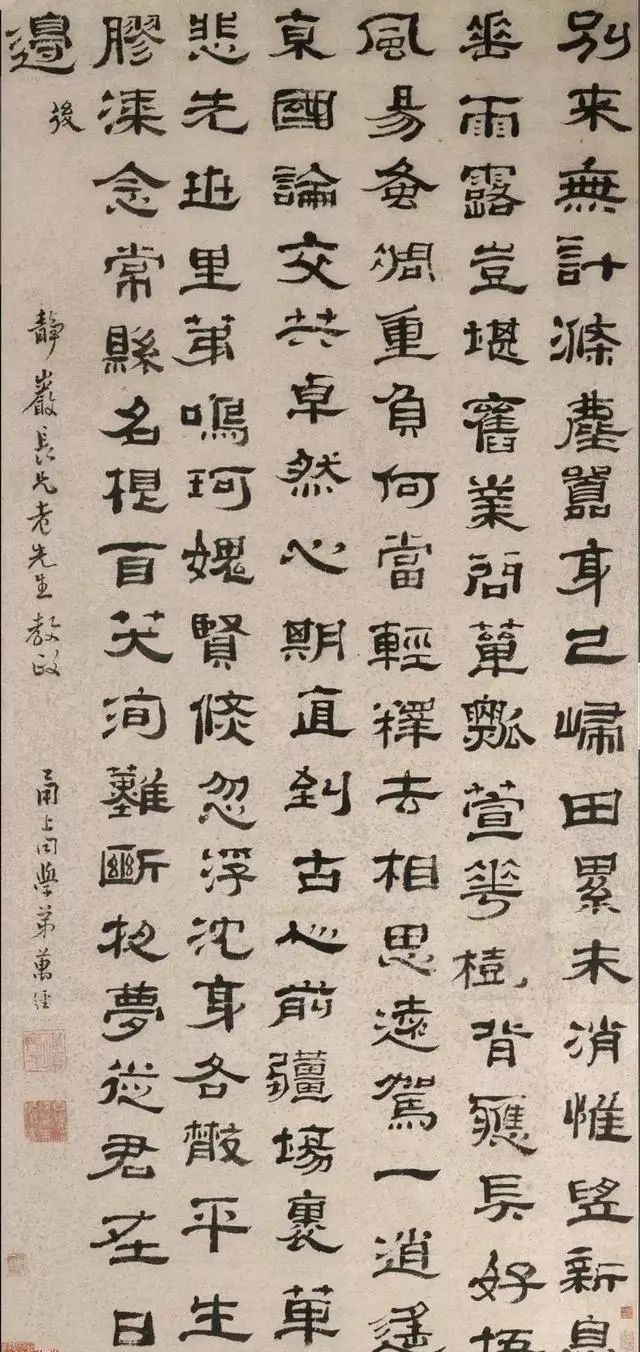 別来無計滌塵囂身已歸田累未消惟望新恩
垂雨露豈堪舊業問簞瓢萱花樹背應長好梧
風易蚤凋重負何當輕釋去相思遠駕一逍遙
京國論交共卓然心期直到古人前疆場裹革
悲先班里第鳴珂媿賢倏忽浮沈身各散平生
膠漆念常縣名根百笑洵難斷夜夢從君在日
邊
後
静巖長兄老先生教政
甬上同學弟萬經